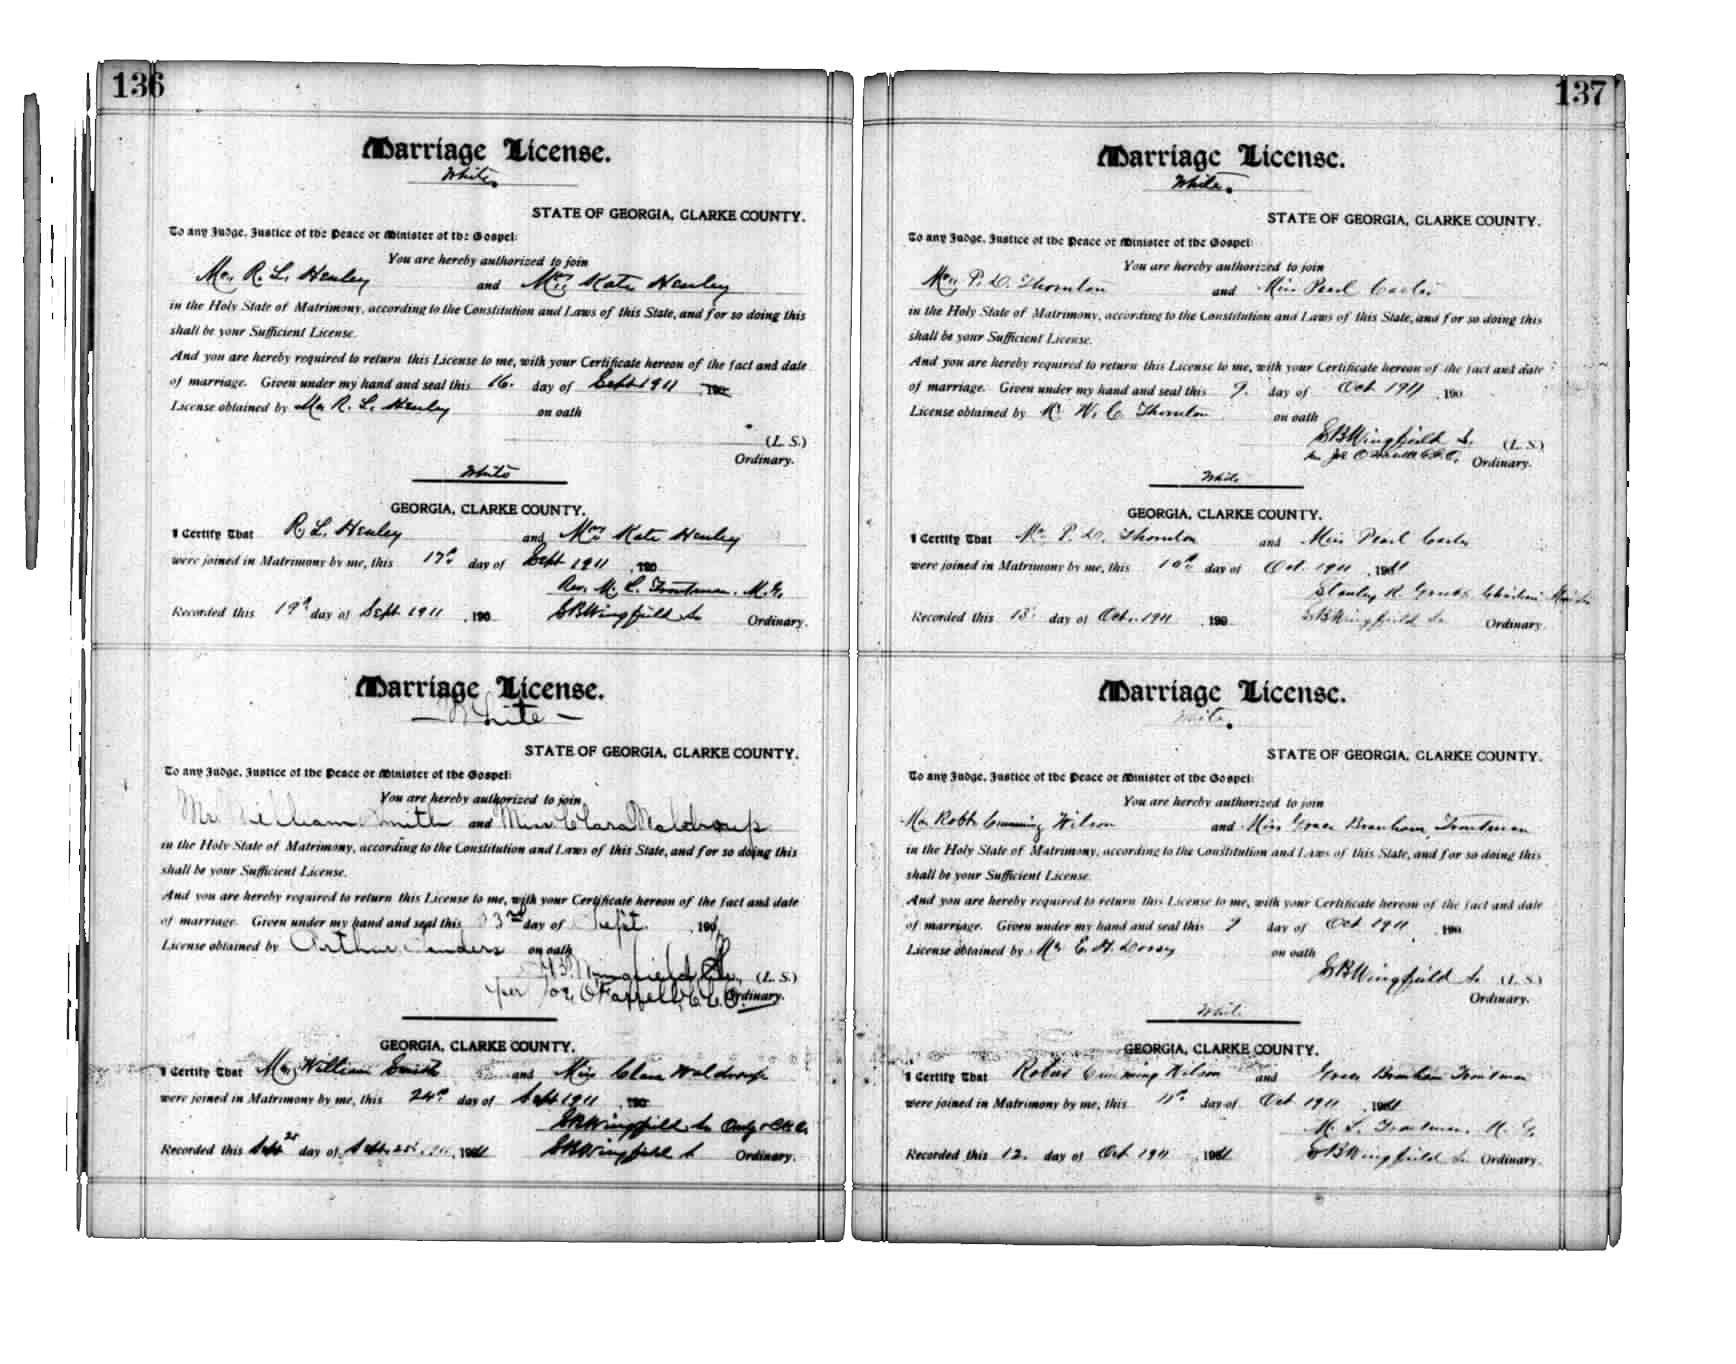 136
Marriage License.
White.
STATE OF GEORGIA, CLARKE COUNTY.
To any Judge, Justice of the Peace or Minister of the Gospel:
You are hereby authorized to join
Mr. R. L. Henley and Mrs Kate Henley
in the Holy State of Matrimony, according to the Constitution and Laws of this State, and for so doing this
shall be your Sufficient License.
And you are hereby required to return this License to me, with your Certificate hereon of the fact and date
of marriage. Given under my hand and seal this 16. day of Sept 1911 , 190
License obtained by Mr R. L. Henley on oath
(L. S.)
Ordinary.
White
GEORGIA, CLARKE COUNTY.
I Certify That R. L. Henley and Mrs Kate Henley
were joined in Matrimony by me, this 17th day of Sept 1911 , 190
Rev. M. L. Troutman. M. G.
Recorded this 19th day of Sept 1911 , 190 S B Wingfield Sr Ordinary.
Marriage License.
White
STATE OF GEORGIA, CLARKE COUNTY.
To any Judge, Justice of the Peace or Minister of the Gospel:
You are hereby authorized to join
Mr. William Smith and Miss Clara Waldroup
in the Holy State of Matrimony, according to the Constitution and Laws of this State, and for so doing this
shall be your Sufficient License.
And you are hereby required to return this License to me, with your Certificate hereon of the fact and date
of marriage. Given under my hand and seal this 23rd day of Sept. , 190
License obtained by Arthur on oath
Wingfield Sr. (L. S.)
per Joe O'Farrell, C. C. O. Ordinary.
GEORGIA, CLARKE COUNTY.
I Certify That Mr William Smith and Miss Clara Waldroup
were joined in Matrimony by me, this 24th day of Sept 1911 , 190
S B Wingfield Sr Ordy
Recorded this Sept 25 day of Sept. 25 , 1911 S B Wingfield Sr Ordinary.
137
Marriage License.
White.
STATE OF GEORGIA, CLARKE COUNTY.
To any Judge, Justice of the Peace or Minister of the Gospel:
You are hereby authorized to join
Mr. P. D. Thornton and Miss Pearl Carter
in the Holy State of Matrimony, according to the Constitution and Laws of this State, and for so doing this
shall be your Sufficient License.
And you are hereby required to return this License to me, with your Certificate hereon of the fact and date
of marriage. Given under my hand and seal this 9. day of Oct 1911 , 190
License obtained by W. C. Thornton on oath
S B Wingfield Sr. (L. S.)
Joe O'Farrell C.C.O. Ordinary.
White
GEORGIA, CLARKE COUNTY.
I Certify That Mr P. D. Thornton and Miss Pearl Carter
were joined in Matrimony by me, this 10th day of Oct. 1911 , 1911
Stanley R. Christian
Recorded this 13 day of Oct. 1911 , 190 S B Wingfield Sr. Ordinary.
Marriage License.
White.
STATE OF GEORGIA, CLARKE COUNTY.
To any Judge, Justice of the Peace or Minister of the Gospel:
You are hereby authorized to join
Mr Robt Cumming Wilson and Miss Grace Branham Troutman
in the Holy State of Matrimony, according to the Constitution and Laws of this State, and for so doing this
shall be your Sufficient License.
And you are hereby required to return this License to me, with your Certificate hereon of the fact and date
of marriage. Given under my hand and seal this 9 day of Oct 1911 , 190
License obtained by Mr E. H. Dorsey on oath
S B Wingfield Sr. (L. S.)
Ordinary.
White
GEORGIA, CLARKE COUNTY.
I Certify That Robert Cumming Wilson and Grace Branham Troutman
were joined in Matrimony by me, this 11th day of Oct 1911 , 1911
M. L. Troutman. M. G.
Recorded this 12. day of Oct 1911 , 1911 S B Wingfield Sr. Ordinary.